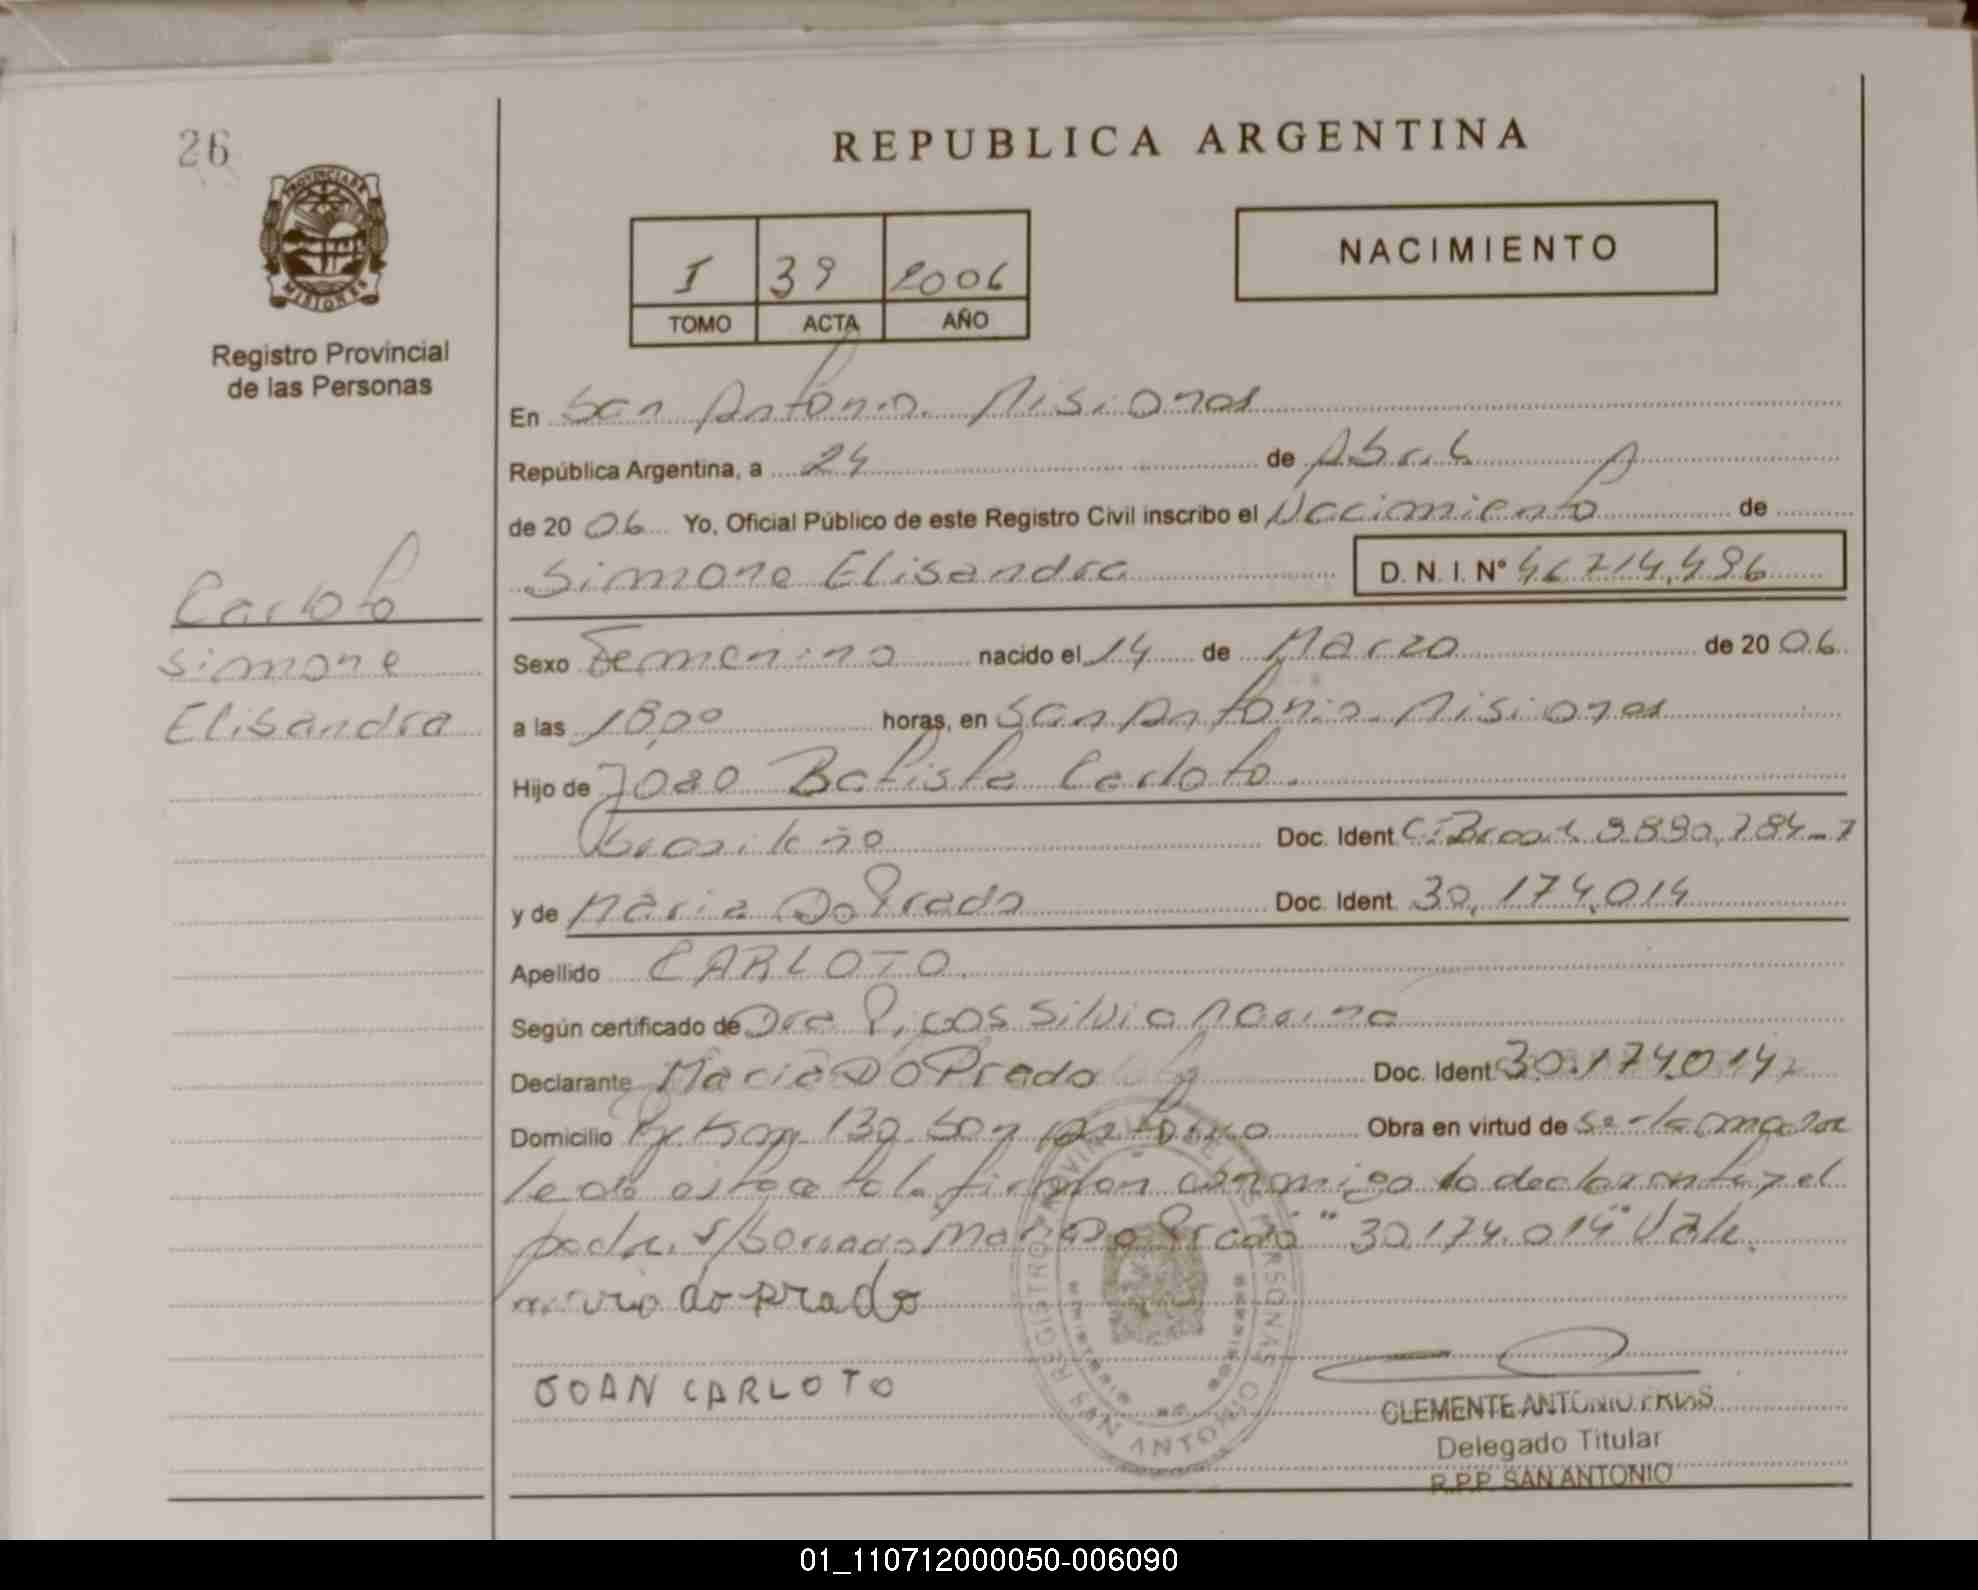 26
REPUBLICA ARGENTINA
PROVINCIA DE
MISIONES
Registro Provincial
de las Personas
I 39 2006
TOMO ACTA AÑO
NACIMIENTO
En San Antonio Misiones
República Argentina, a 24 de Abril
de 20 06 Yo, Oficial Público de este Registro Civil inscribo el Nacimiento de
Simone Elisandra D. N. I. N° 46.714.496
Carloto
Simone
Elisandra
Sexo Femenino nacido el 14 de Marzo de 20 06
a las 18,00 horas, en San Antonio Misiones
Hijo de Joao Batista Carloto.
brasileño Doc. Ident C.I Brasil 9.890.784-7
y de Maria Do Prado Doc. Ident. 30.174.014
Apellido CARLOTO
Según certificado de Dra Picos Silvia
Declarante Maria Do Prado Doc. Ident 30.174.014
Domicilio Km 130 San Antonio Obra en virtud de
Leda esta acta la firman conmigo la declarante y el
padre. S/borrado Maria Do Prado" "30.174.014" Vale.
maria do prado
JOAN CARLOTO
REGISTRO PROVINCIAL DE LAS PERSONAS
SAN ANTONIO
CLEMENTE ANTONIO FRIAS
Delegado Titular
R.P.P. SAN ANTONIO
01_110712000050-006090